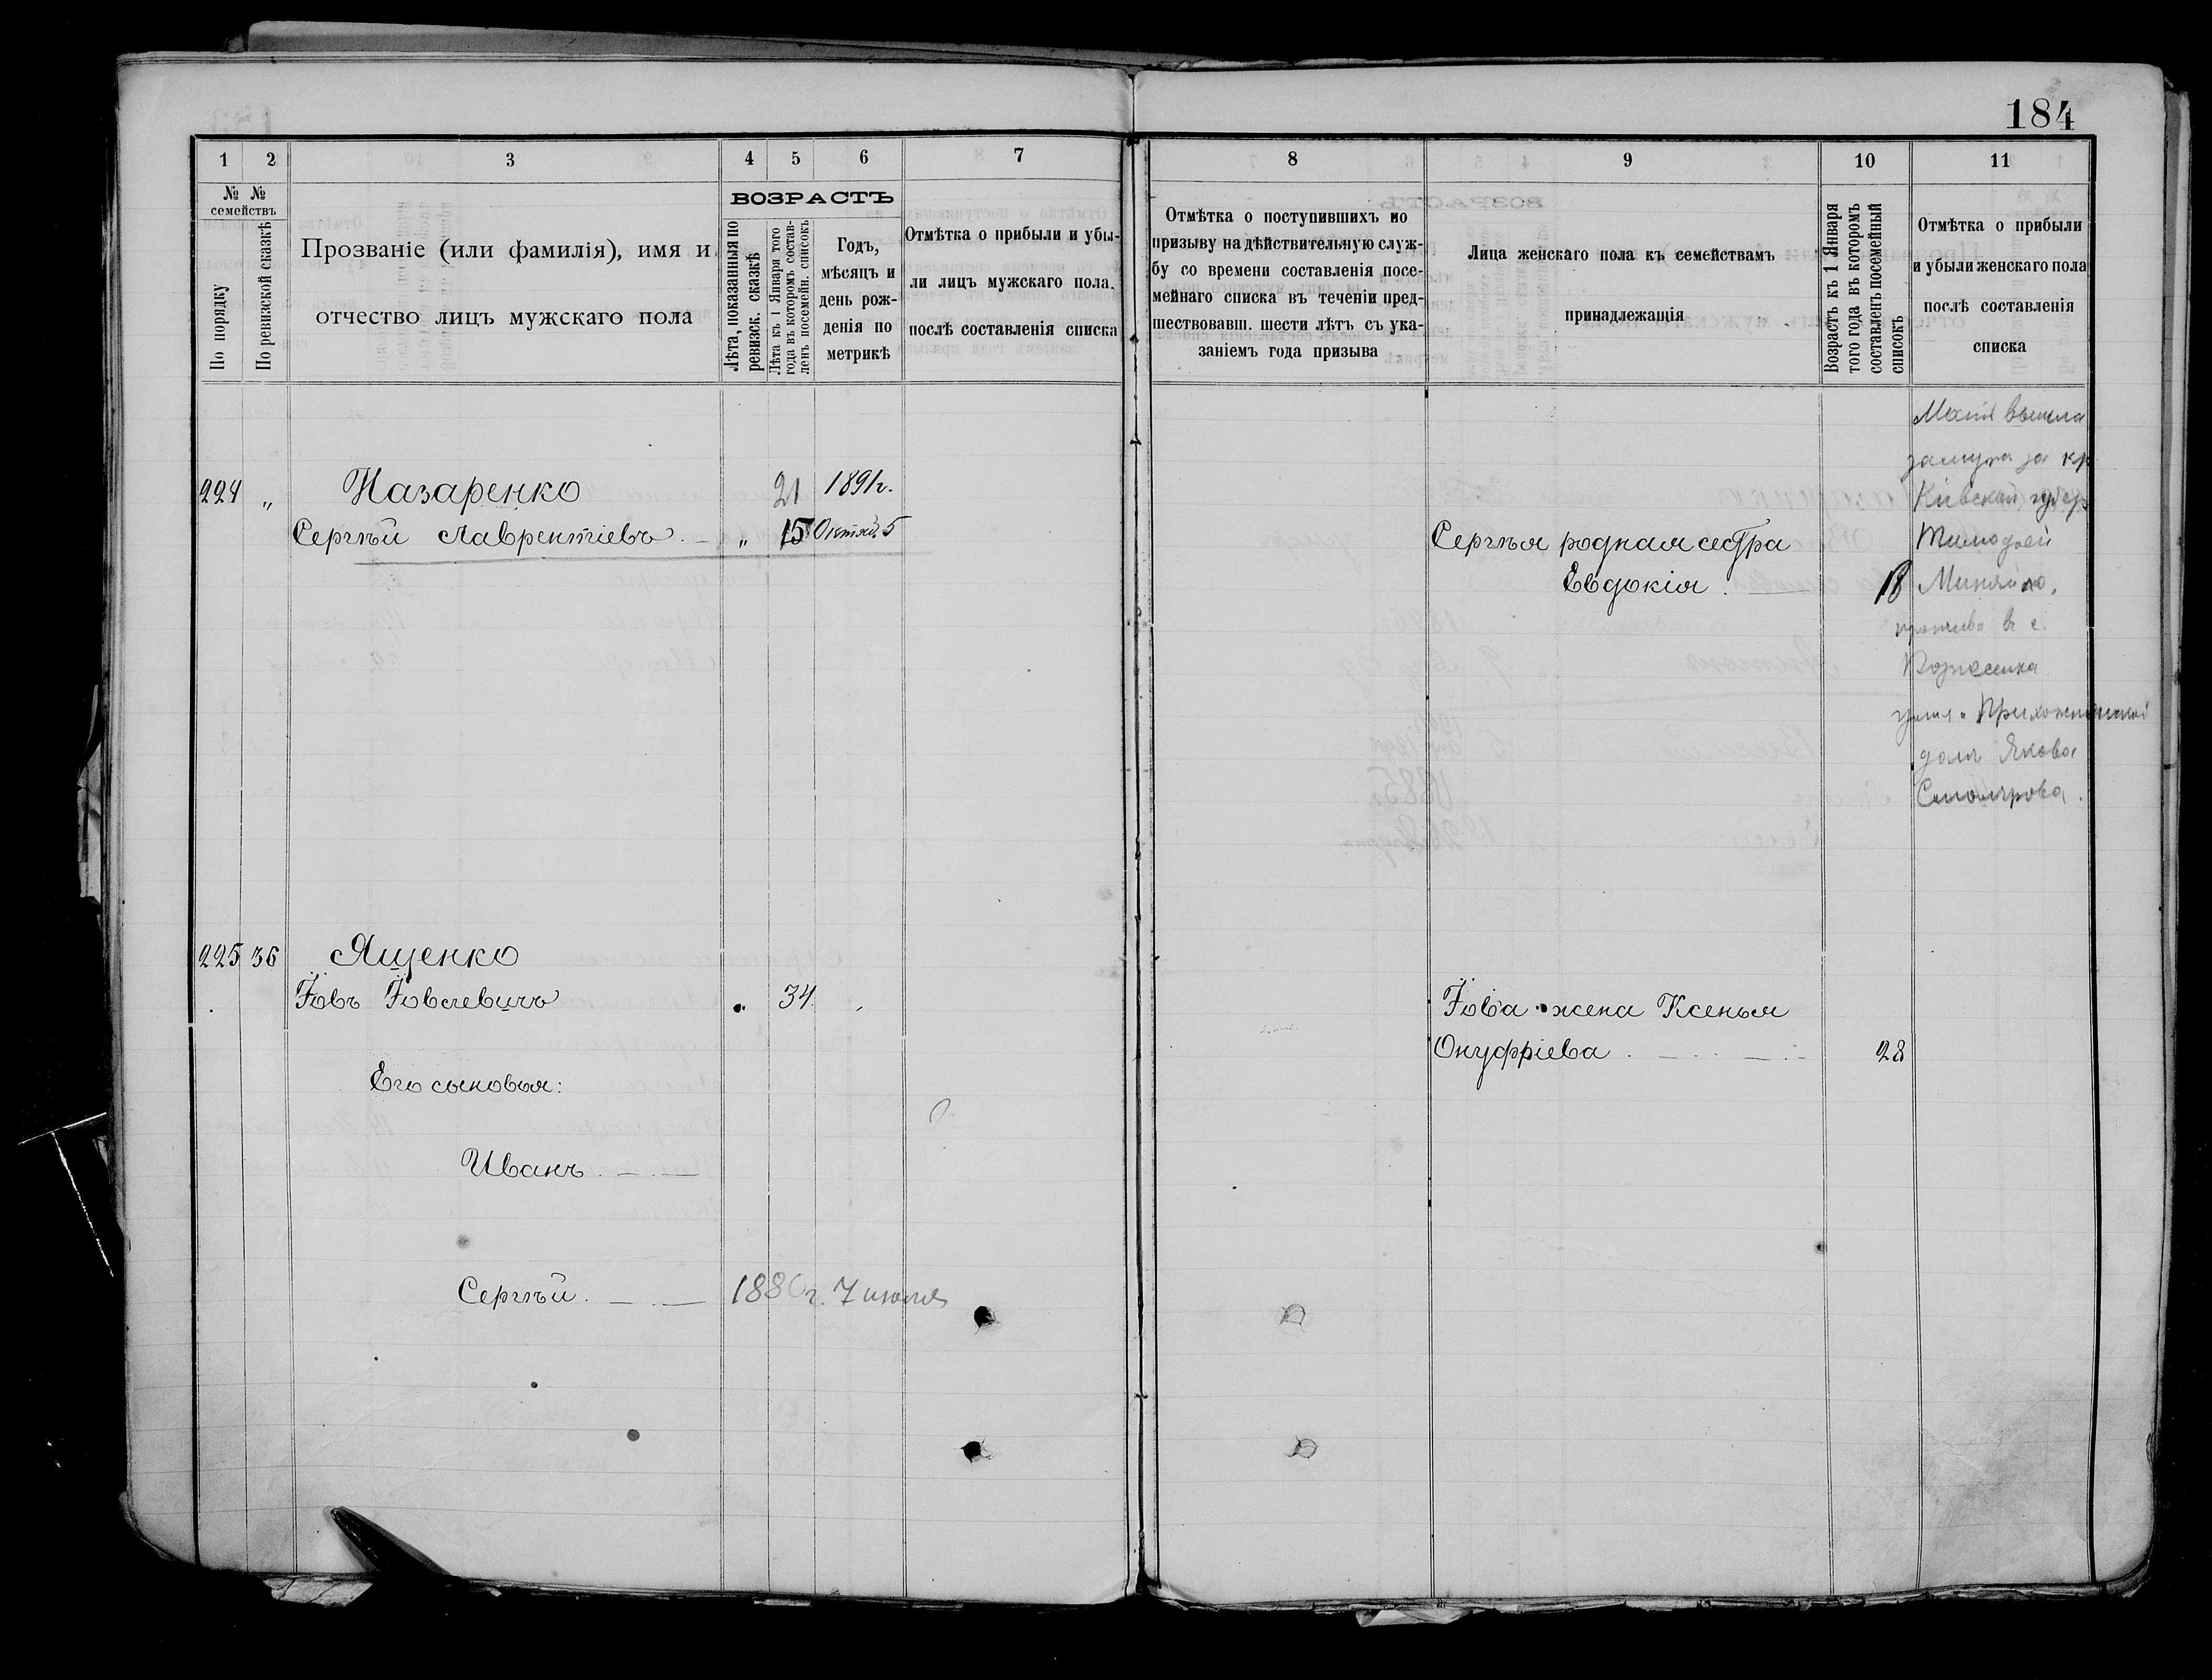 184
1 2 3 4 5 6 7
№ № семействъ
По порядку
По ревизской сказкѣ
Прозваніе (или фамилія), имя и
отчество лицъ мужскаго пола
ВОЗРАСТЪ
Лѣта, показанныя по
ревизск. сказкѣ
Лѣта къ 1 Января того
года въ которомъ состав-
ленъ посемейн. списокъ
Годъ,
мѣсяцъ и
день рож-
денія по
метрикѣ
Отмѣтка о прибыли и убы-
ли лицъ мужскаго пола,
послѣ составленія списка
8 9 10 11
Отмѣтка о поступившихъ по
призыву на дѣйствительную служ-
бу со времени составленія посе-
мейнаго списка въ теченіи пред-
шествовавш. шести лѣтъ съ ука-
заніемъ года призыва
Лица женскаго пола къ семействамъ
принадлежащія
Возрастъ къ 1 Января
того года въ которомъ
составленъ посемейный
списокъ
Отмѣтка о прибыли
и убыли женскаго пола
послѣ составленія
списка
224 „ Назаренко 21 1891г.
Сергѣй Лаврентіевъ „ 15 Октяб. 5
Сергѣя родная сестра
Евдокія 18
вышла
замужъ за кр
Кіевской губер
Тимофей
въ с.
домъ Якова
Столярова.
225 36 Ященко
Іовъ Іовлевичъ 34
Іова жена Ксенья
Онуфріева 28
Его сыновья:
Иванъ
Сергѣй 1886г. 7 июля